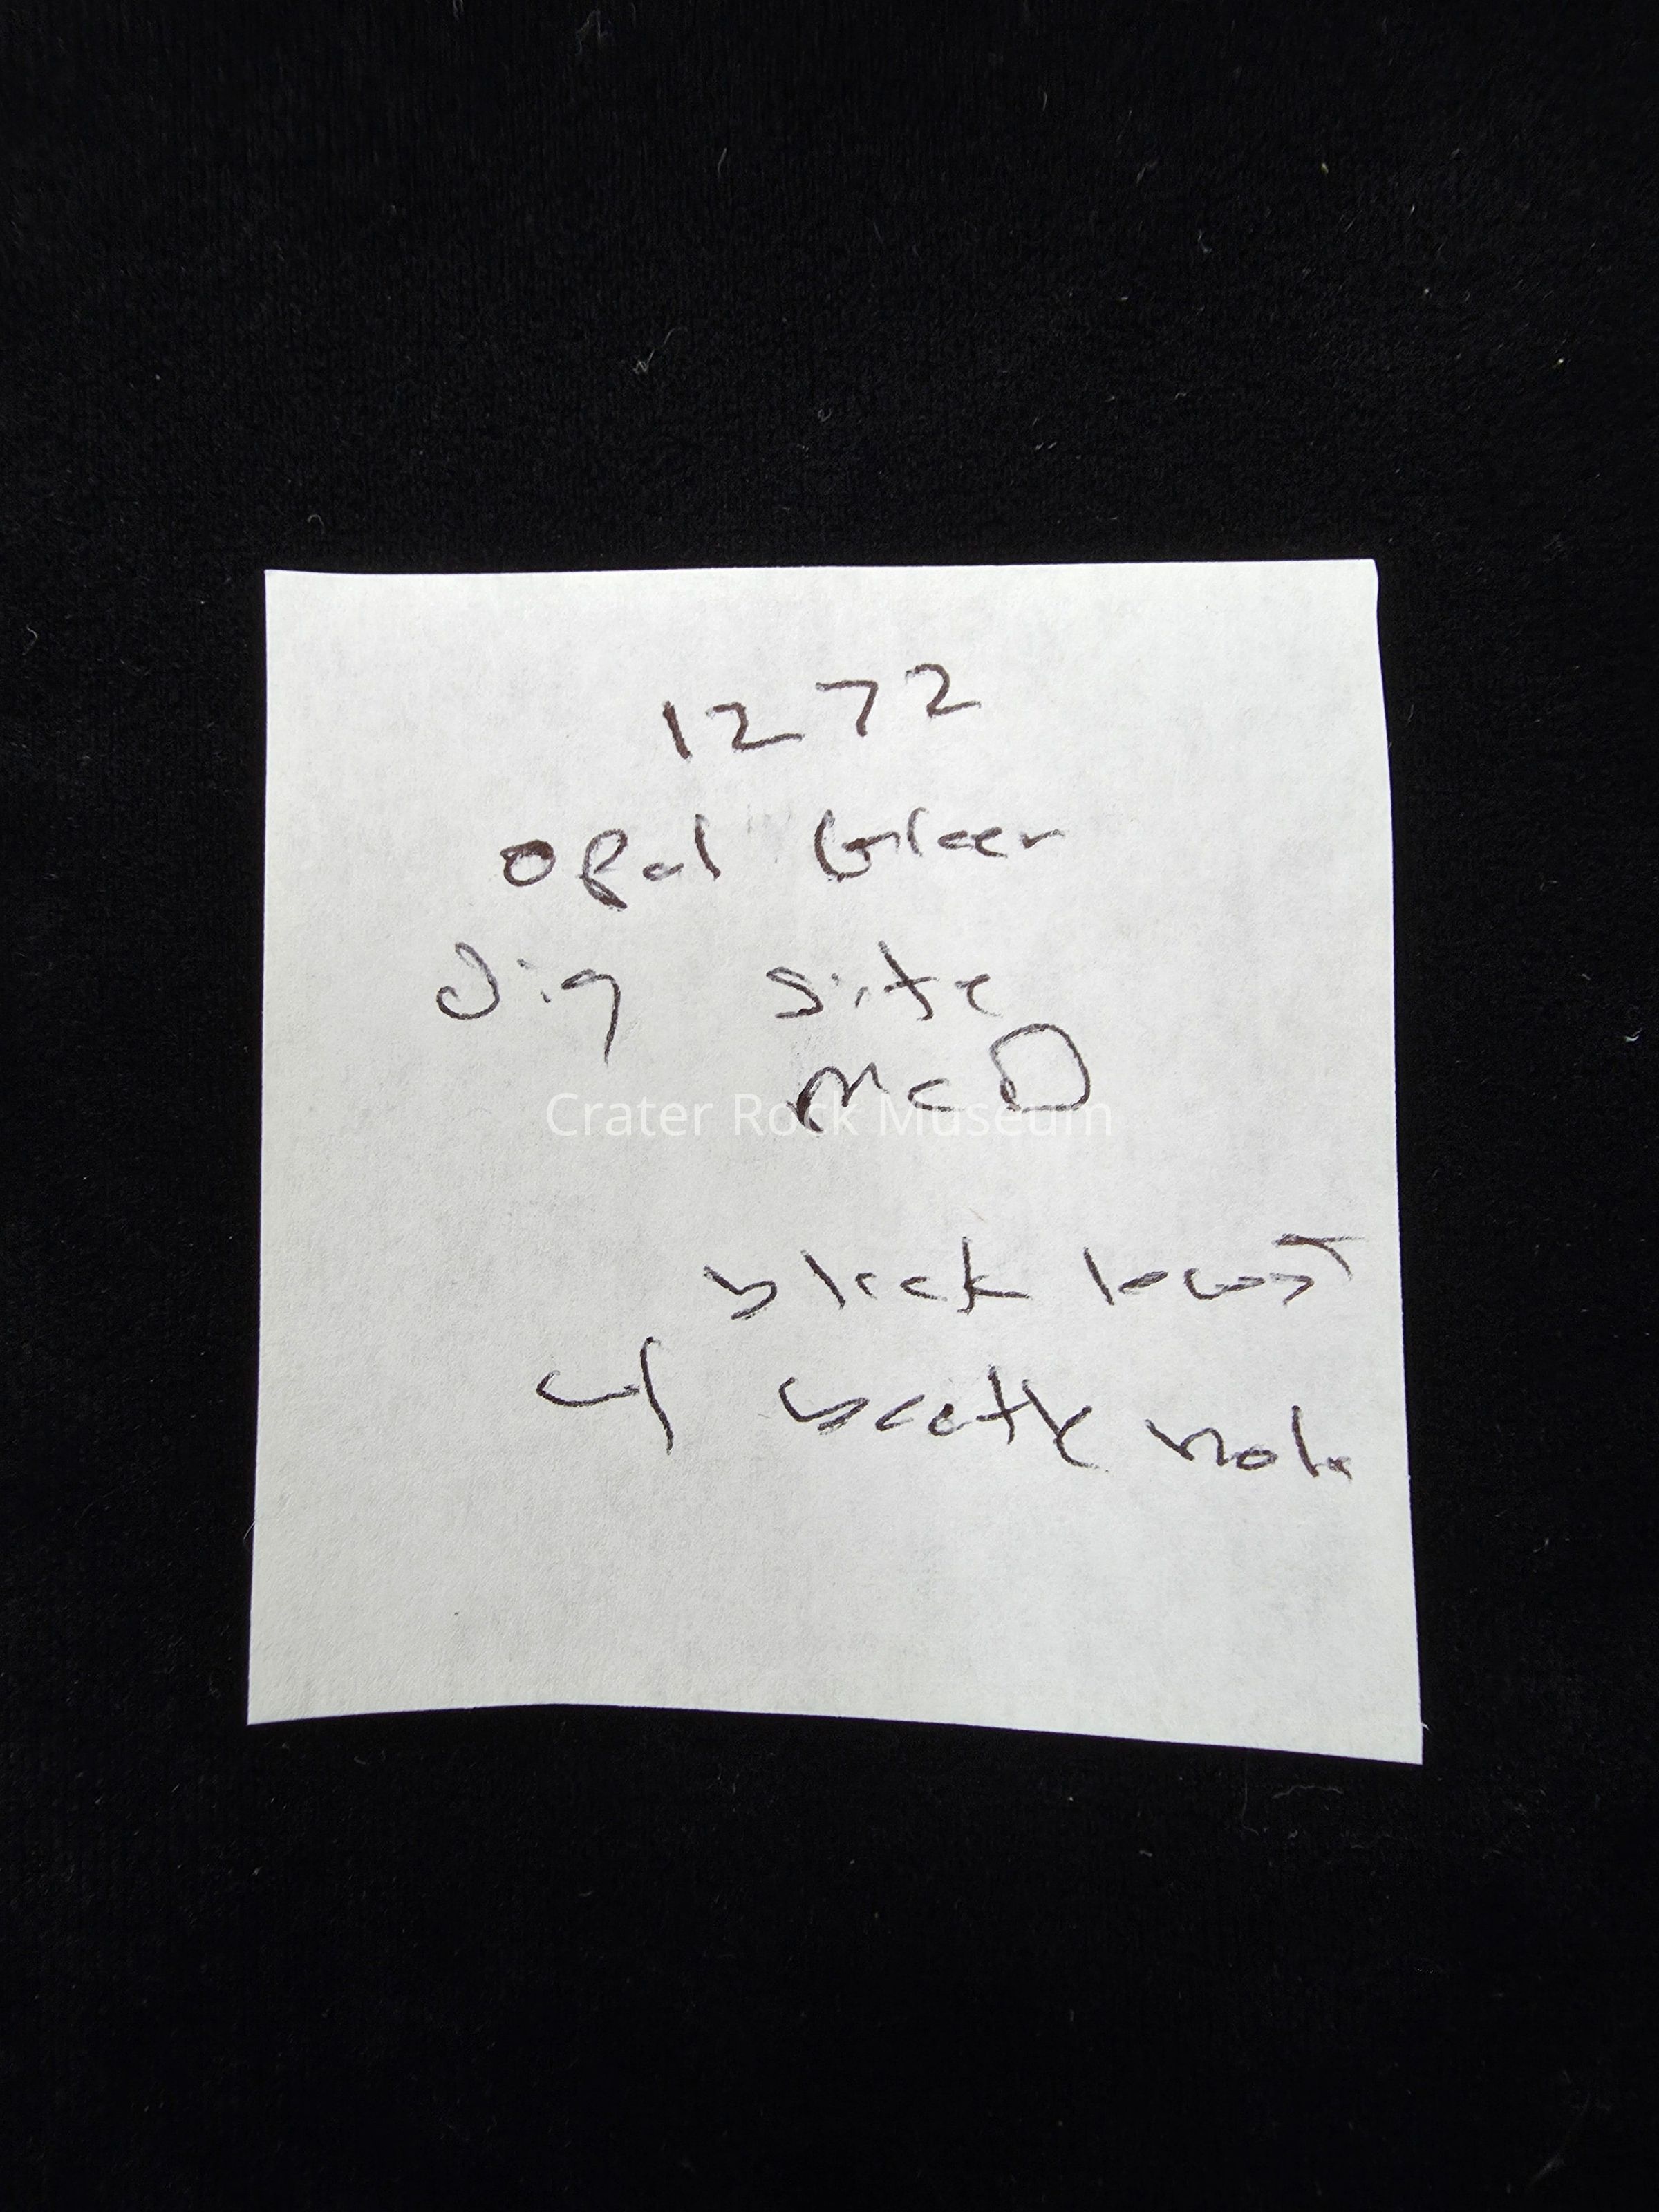 1272
Opal
Dig site
McD
Crater Rock Museum
black locust
w/ beetle hole